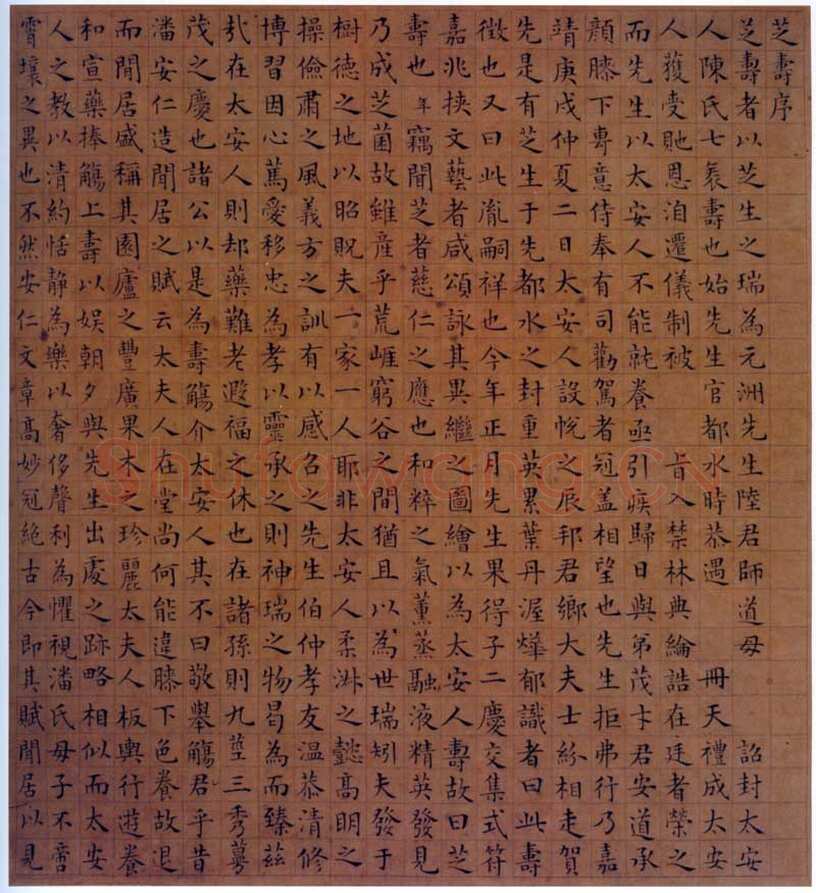 芝壽序
芝壽者以芝生之瑞為元洲先生陸君師道母 詔封太安
人陳氏七袠壽也始先生官都水時恭遇 冊天禮成太安
人獲受貤恩洎還儀制被 旨入禁林典綸誥在廷者榮之
而先生以太安人不能就養亟引疾歸日與弟茂才君安道承
顏膝下專意侍奉有司勸駕者冠蓋相望也先生拒弗行乃嘉
靖庚戌仲夏二日太安人設帨之辰邦君鄉大夫士紛相走賀
先是有芝生于先都水之封重英累葉丹渥燁郁識者曰此壽
徵也又曰此胤嗣祥也今年正月先生果得子二慶交集式符
嘉兆挾文藝者咸頌詠其異繼之圖繪以為太安人壽故曰芝
壽也年竊聞芝者慈仁之應也和粹之氣薰蒸融液精英發見
乃成芝菌故雖産乎荒崕窮谷之間猶且以為世瑞矧夫發于
樹德之地以昭貺夫一家一人耶非太安人柔淋之懿高明之
操儉肅之風義方之訓有以感召之先生伯仲孝友溫恭清修
博習因心篤愛移忠為孝以靈承之則神瑞之物曷為而臻茲
㢤在太安人則却藥難老遐福之休也在諸孫則九莖三秀蕚
茂之慶也諸公以是為壽觴介太安人其不曰敬舉觴君乎昔
潘安仁造閒居之賦云太夫人在堂尚何能違膝下色養故退
而閒居盛稱其園廬之豐廣果木之珍麗太夫人板輿行遊養
和宣藥捧觴上壽以娛朝夕與先生出處之跡略相似而太安
人之教以清約恬靜為樂以奢侈聲利為懼視潘氏母子不啻
霄壤之異也不然安仁文章高妙冠絕古今即其賦閒居以見
Shufawang.CN